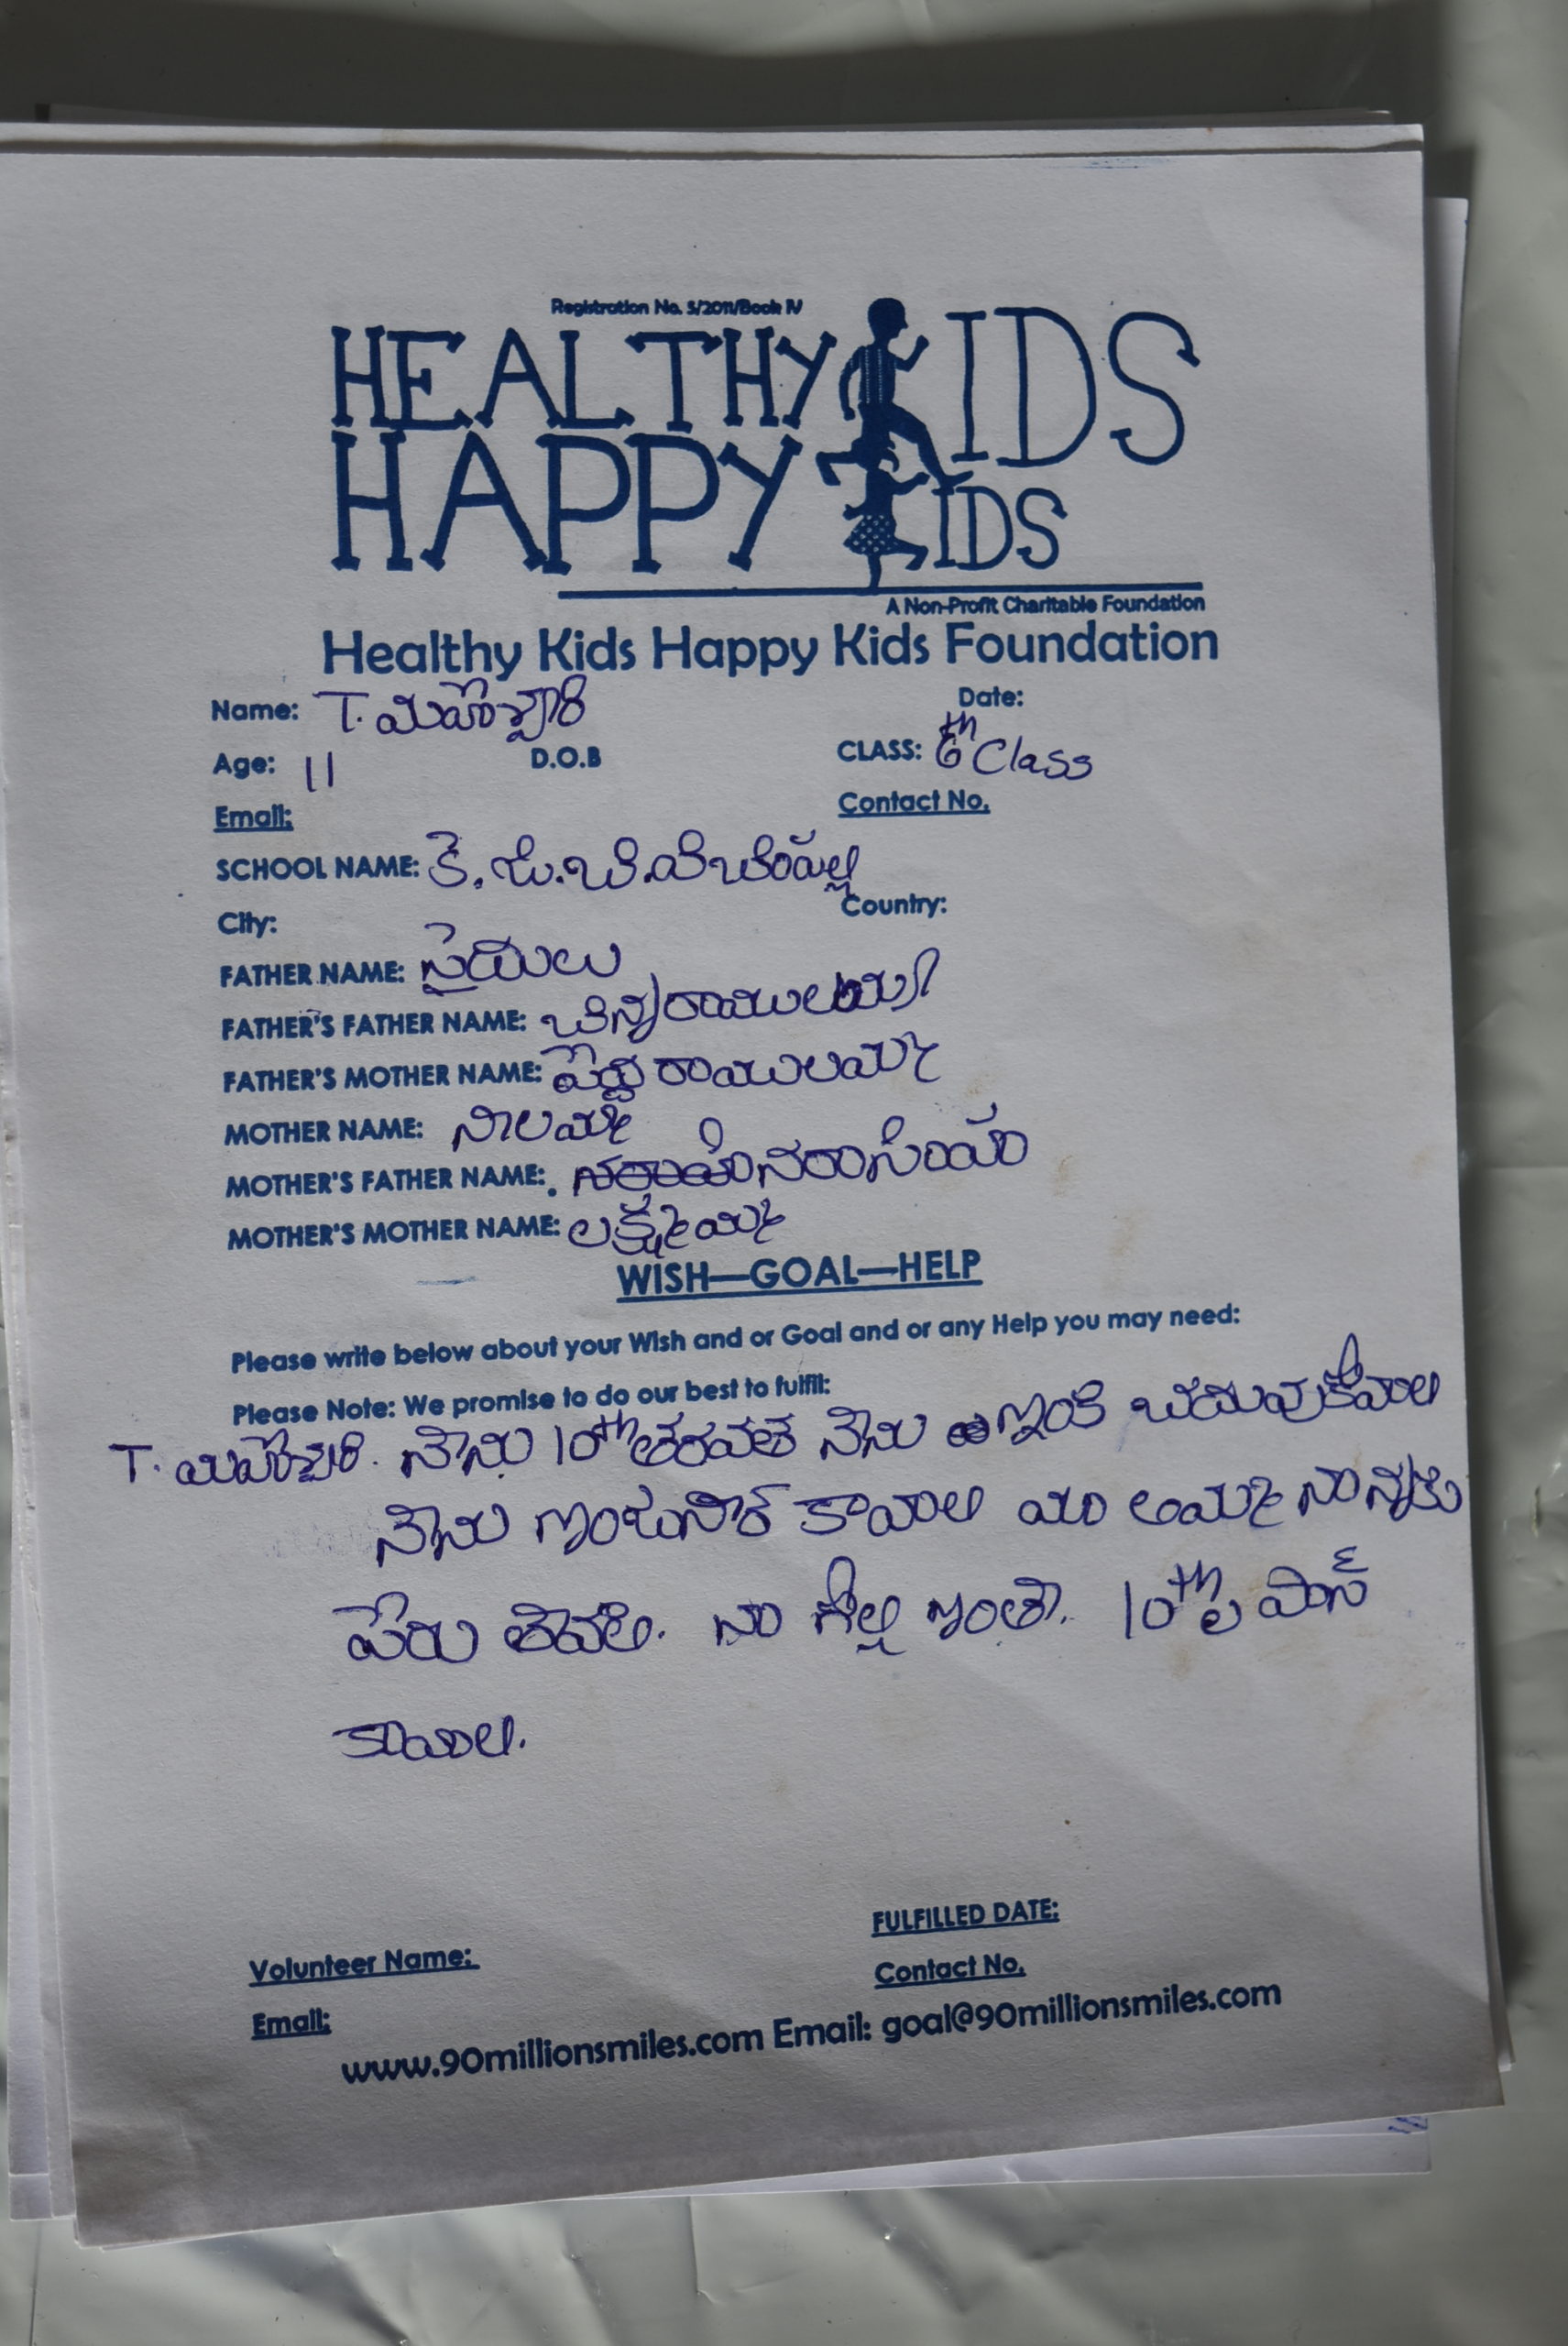 Registration No. 5/2011/Book IV
HEALTHY KIDS
HAPPY KIDS
A Non-Profit Charitable Foundation
Healthy Kids Happy Kids Foundation
Name: T. మహేశ్వరి Date:
Age: 11 D.O.B CLASS: 6th Class
Email: Contact No.
SCHOOL NAME: కె. జి. బి. వి
City: Country:
FATHER NAME: సైదులు
FATHER'S FATHER NAME: చిన్నరాములయ్య
FATHER'S MOTHER NAME: పెద్ద రాములమ్మ
MOTHER NAME: నీలమ్మ
MOTHER'S FATHER NAME: నరాసింహ
MOTHER'S MOTHER NAME: లక్ష్మమ్మ
WISH—GOAL—HELP
Please write below about your Wish and or Goal and or any Help you may need:
Please Note: We promise to do our best to fulfil:
T. మహేశ్వరి. నేను 10th తరవత నేను ఇంకి చదువుకోవాలి
నేను ఇంజునీర్ కావాలి మా అమ్మ నాన్నకు
పేరు తేవలి. నా ఇంతే. 10th లె పాస్
కావాలి.
FULFILLED DATE:
Volunteer Name: Contact No.
Email:
www.90millionsmiles.com Email: goal@90millionsmiles.com